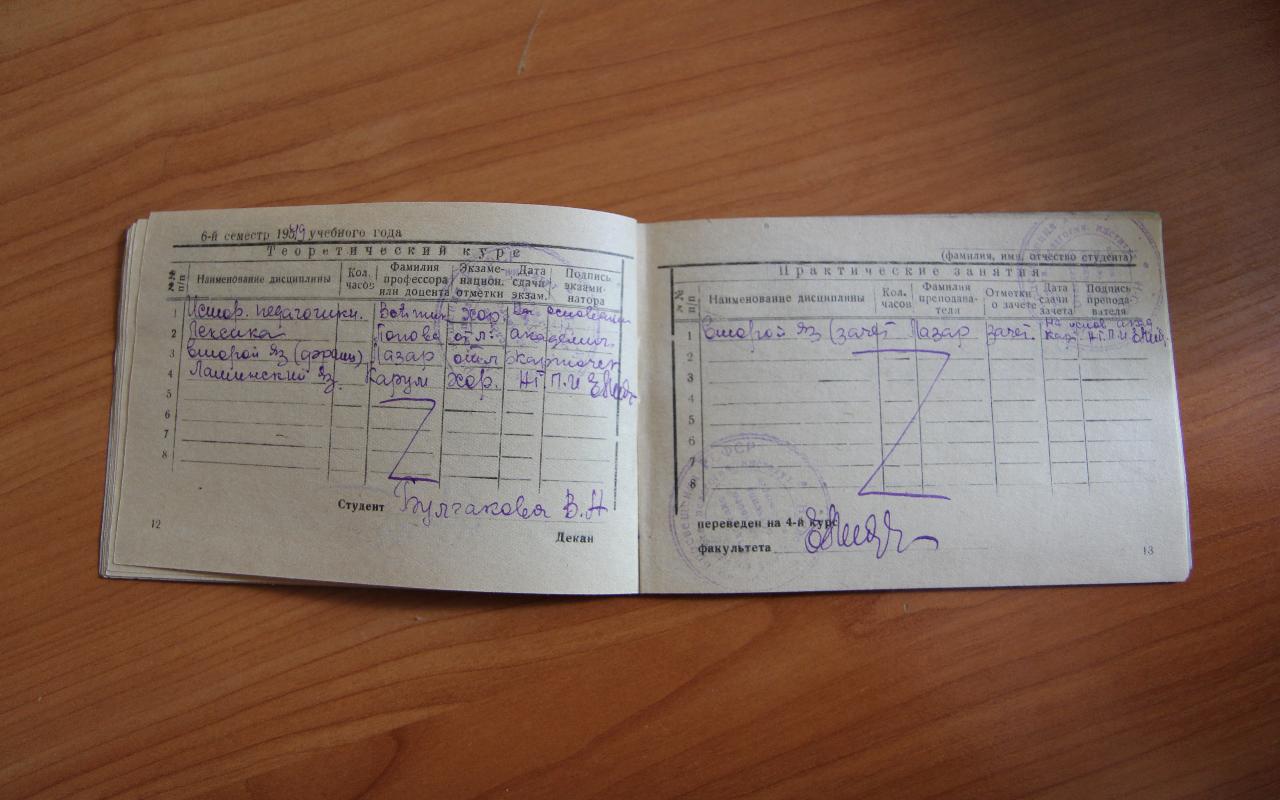 6-й семестр 195 учебного года
Теоретический курс
№№ п/п
Наименование дисциплины
Кол. часов
Фамилия профессора или доцента
Экзаме-национ. отметки
Дата сдачи экзам.
Подпись экзами-натора
1 Истор. педагогики. хор. На основании
2 Лексика Попова отл. академич.
3 Второй яз (франц) Лазар отл карточек
4 Латинский яз. Карум хор. НГПИ
5
6
7
8
Студент Булгакова В.Н
Декан
12
(фамилия, имя, отчество студента)
Практические занятия
№№ п/п
Наименование дисциплины
Кол. часов
Фамилия преподава-теля
Отметки о зачете
Дата сдачи зачета
Подпись препода-вателя
1 Второй яз (зачет Лазар зачет. На основ акад карт НГПИ
2
3
4
5
6
7
8
переведен на 4-й курс
факультета
13